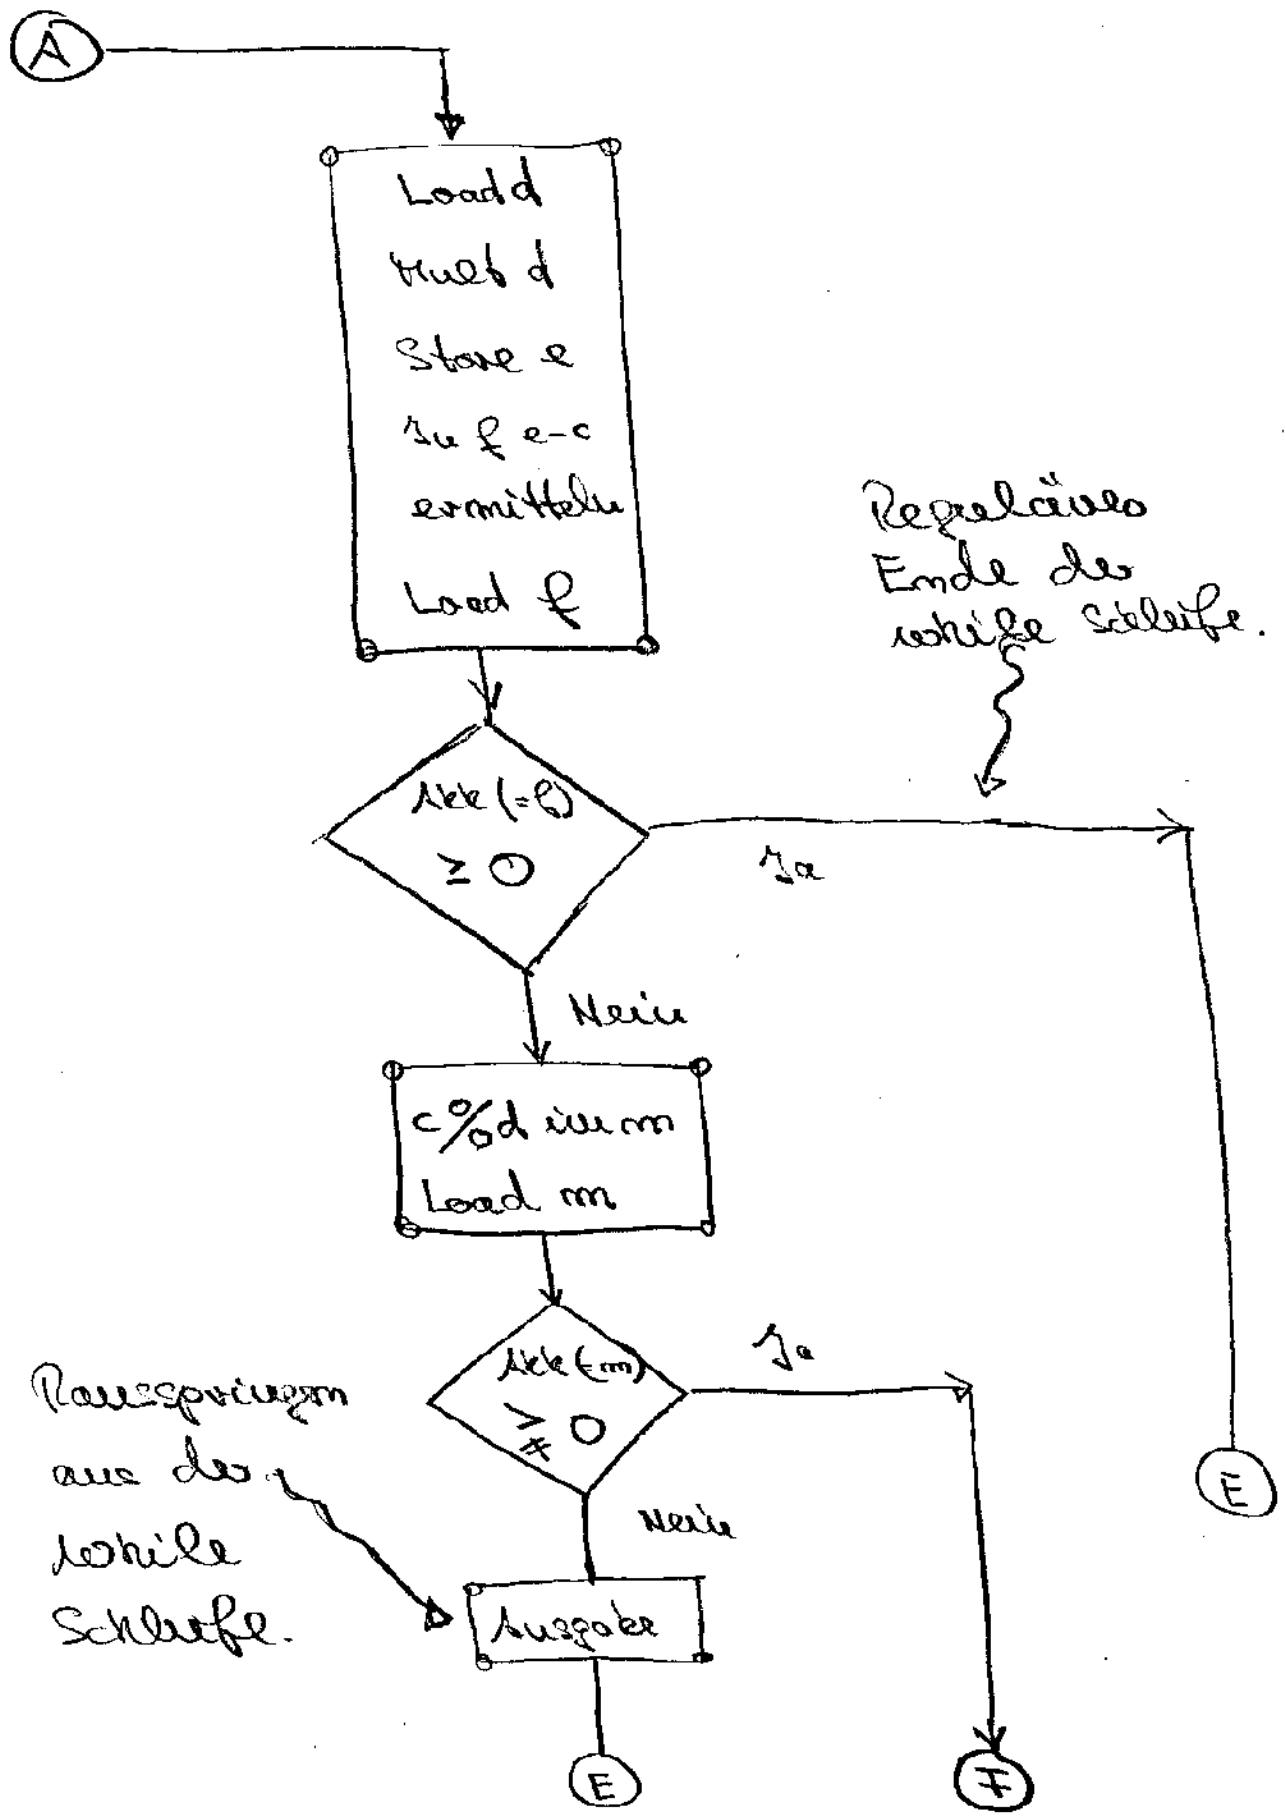 A
Load d
Mult d
Store e
In f e-c
ermitteln
Load f
Reguläres
Ende der
while Schleife.
Akk (=f)
≥ 0
Ja
Nein
c%d in m
Load m
Akk (=m)
> 0
Ja
Rausspringen
aus der
while
Schleife.
E
Nein
Ausgabe
E
F